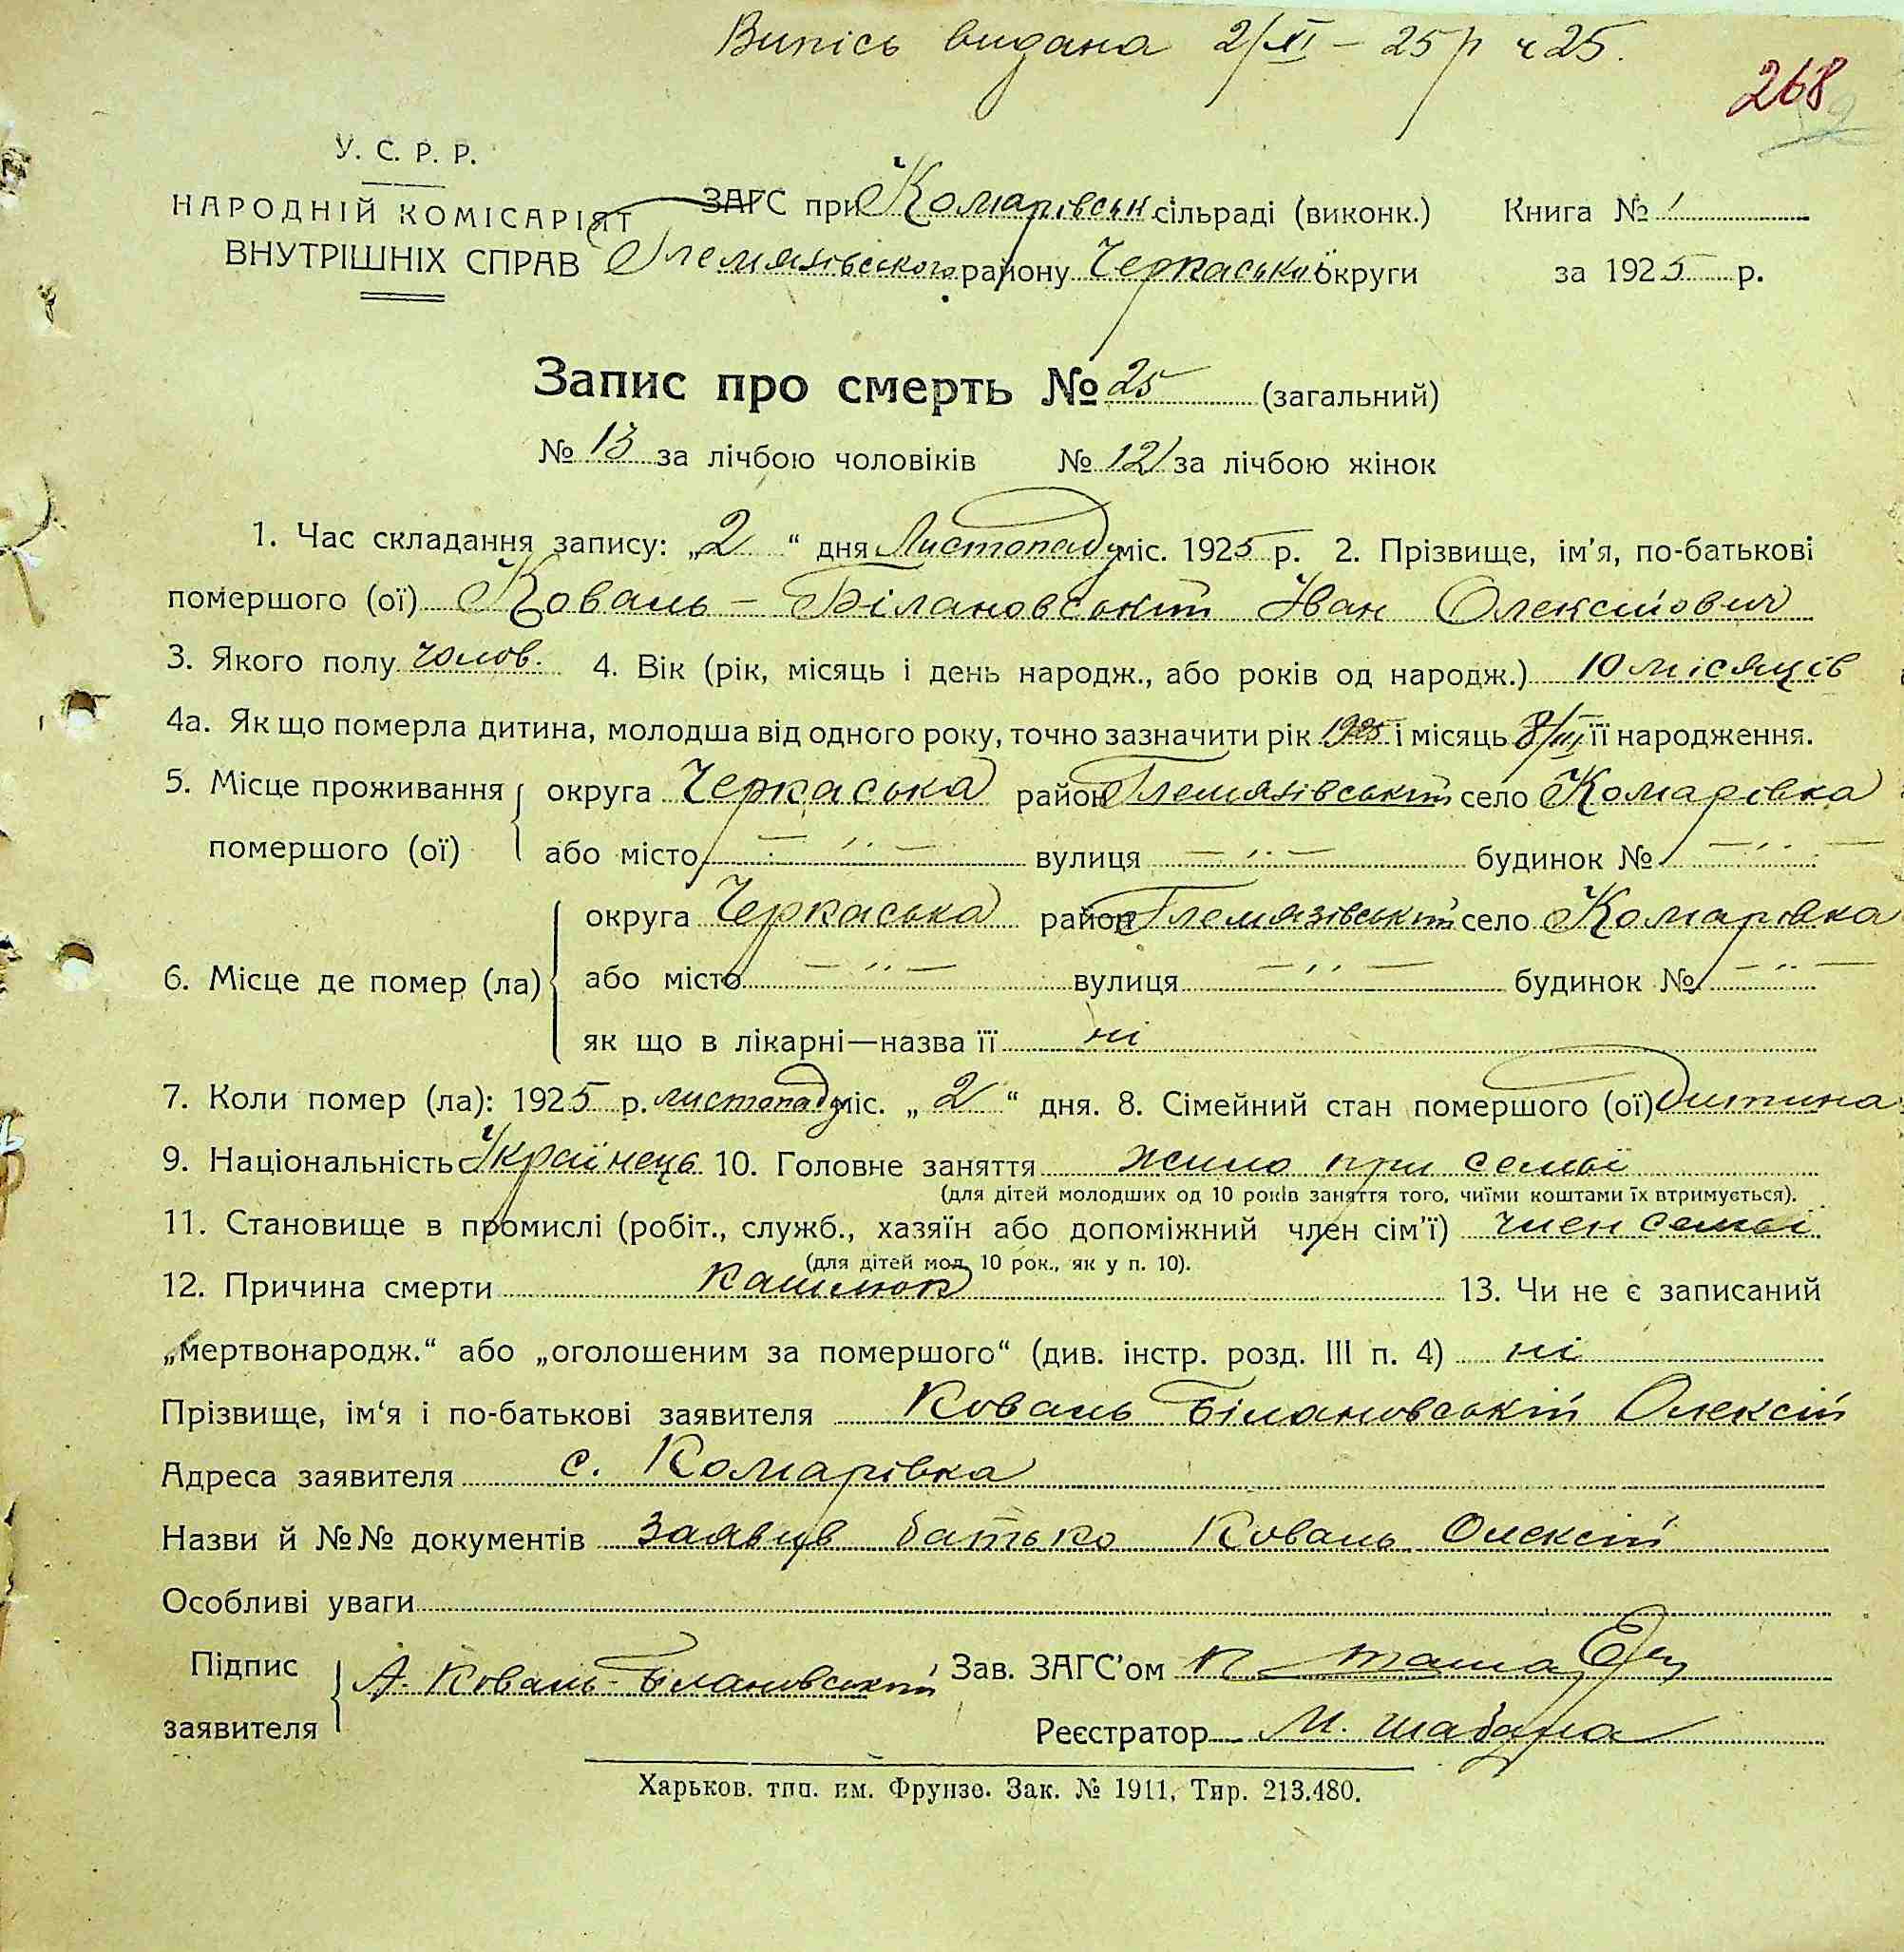 Випісь видана 2/XI – 25 р ч 25.
268
У. С. Р. Р.
НАРОДНІЙ КОМІСАРІЯТ
ВНУТРІШНІХ СПРАВ
ЗАГС при Комарівськ сільраді (виконк.) Книга № 1
Глемязівського району Черкаської округи за 1925 р.
Запис про смерть № 25 (загальний)
№ 13 за лічбою чоловіків № 12 за лічбою жінок
1. Час складання запису: „2“ дня Листопаду міс. 1925 р. 2. Прізвище, ім'я, по-батькові
помершого (ої) Коваль – Білановський Іван Олексійович
3. Якого полу чолов. 4. Вік (рік, місяць і день народж., або років од народж.) 10 місяців
4а. Як що померла дитина, молодша від одного року, точно зазначити рік 1925 і місяць 8/III її народження.
5. Місце проживання помершого (ої) округа Черкаська район Глемязівський село Комарівка
або місто – ,, – вулиця – ,, – будинок № – ,, –
6. Місце де помер (ла) округа Черкаська район Глемязівський село Комарівка
або місто – ,, – вулиця – ,, – будинок № – ,, –
як що в лікарні—назва її ні
7. Коли помер (ла): 1925 р. листопаду міс. „2“ дня. 8. Сімейний стан помершого (ої) Дитина
9. Національність Українець 10. Головне заняття жило при семьї
(для дітей молодших од 10 років заняття того, чиїми коштами їх втримується).
11. Становище в промислі (робіт., служб., хазяїн або допоміжний член сім'ї) член семьї
(для дітей мол. 10 рок., як у п. 10).
12. Причина смерти кашлюк 13. Чи не є записаний
„мертвонародж.“ або „оголошеним за помершого“ (див. інстр. розд. III п. 4) ні
Прізвище, ім'я і по-батькові заявителя Коваль Білановський Олексій
Адреса заявителя с. Комарівка
Назви й №№ документів заявив батько Коваль Олексій
Особливі уваги
Підпис заявителя А. Коваль-Білановський Зав. ЗАГС'ом
Реєстратор М. Шабдра
Харьков. тип. им. Фрунзе. Зак. № 1911, Тир. 213.480.